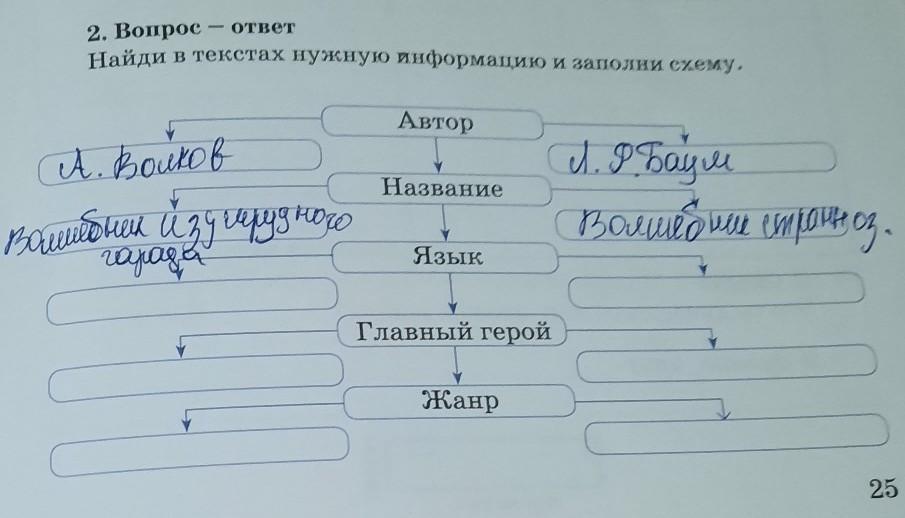 2. Вопрос — ответ
Найди в текстах нужную информацию и заполни схему.
Автор
А. Волков
Л. Ф. Баум
Название
Волшебник Изумрудного
города
Волшебник стран оз.
Язык
Главный герой
Жанр
25